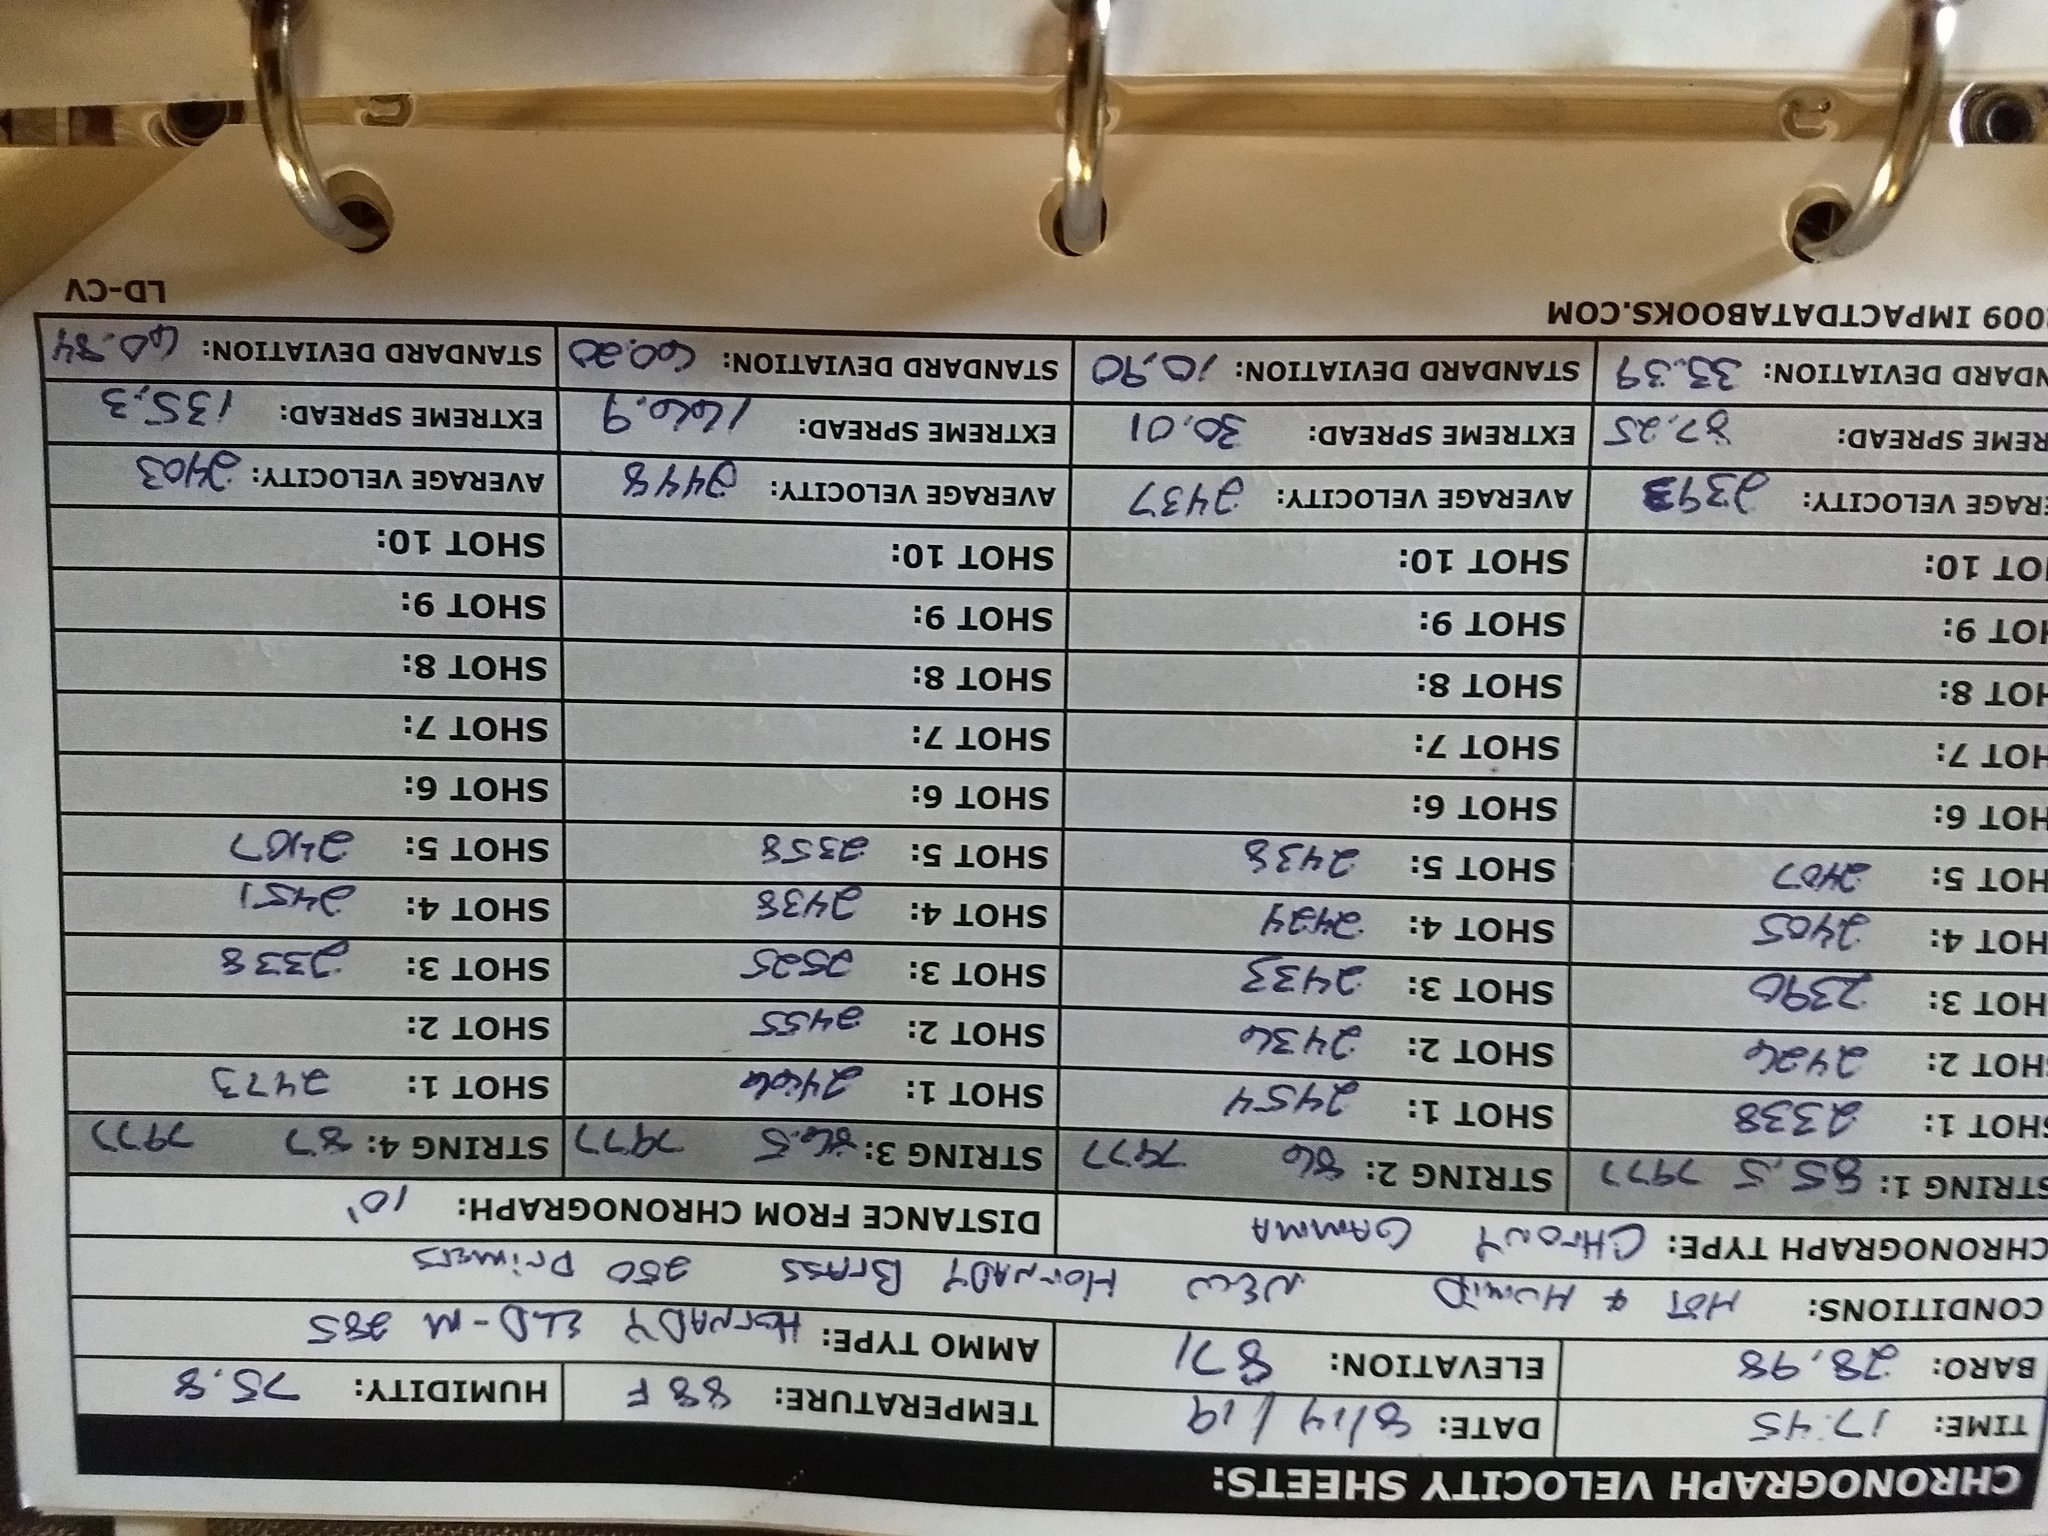 CHRONOGRAPH VELOCITY SHEETS:
TIME: 17:45 DATE: 8/14/19 TEMPERATURE: 88 F HUMIDITY: 75.8
BARO: 28.98 ELEVATION: 871 AMMO TYPE: HORNADY ELD-M 285
CONDITIONS: HOT & HUMID NEW HORNADY BRASS 250 PRIMERS
CHRONOGRAPH TYPE: CHRONY GAMMA DISTANCE FROM CHRONOGRAPH: 10'
STRING 1: 85.5 7977 STRING 2: 86 7977 STRING 3: 86.5 7977 STRING 4: 87 7977
SHOT 1: 2338 SHOT 1: 2454 SHOT 1: 2466 SHOT 1: 2473
SHOT 2: 2426 SHOT 2: 2436 SHOT 2: 2455 SHOT 2:
HOT 3: 2390 SHOT 3: 2433 SHOT 3: 2525 SHOT 3: 2338
HOT 4: 2405 SHOT 4: 2424 SHOT 4: 2438 SHOT 4: 2451
HOT 5: 2407 SHOT 5: 2438 SHOT 5: 2358 SHOT 5: 2407
HOT 6: SHOT 6: SHOT 6: SHOT 6:
HOT 7: SHOT 7: SHOT 7: SHOT 7:
HOT 8: SHOT 8: SHOT 8: SHOT 8:
HOT 9: SHOT 9: SHOT 9: SHOT 9:
HOT 10: SHOT 10: SHOT 10: SHOT 10:
ERAGE VELOCITY: 2393 AVERAGE VELOCITY: 2437 AVERAGE VELOCITY: 2448 AVERAGE VELOCITY: 2403
REME SPREAD: 87.25 EXTREME SPREAD: 30.01 EXTREME SPREAD: 166.9 EXTREME SPREAD: 135.3
NDARD DEVIATION: 33.39 STANDARD DEVIATION: 10.90 STANDARD DEVIATION: 60.20 STANDARD DEVIATION: 60.84
2009 IMPACTDATABOOKS.COM LD-CV